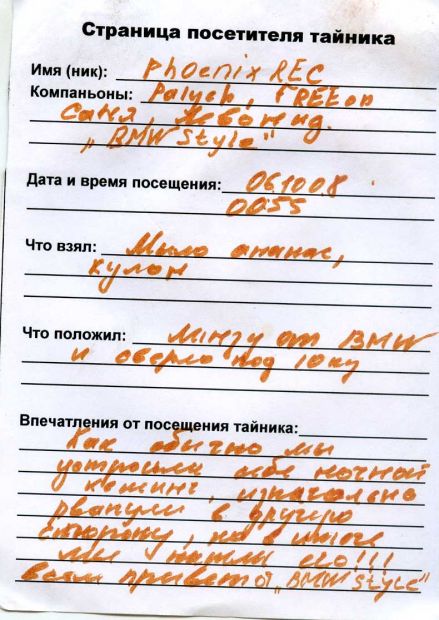 Страница посетителя тайника
Имя (ник): PhoenixREC
Компаньоны: Palych, FREEon
Саня, Леонид.
„BMWStyle"
Дата и время посещения: 061008
0055
Что взял: Мыло ананас,
кулон
Что положил: от BMW
и сверло под 10ку
Впечатления от посещения тайника:
Как обычно мы
устроили себе ночной
кешинг, изначально
рванули в другую
сторону, но в итоге
мы нашли его!!!
Всем привет от „BMWStyle"